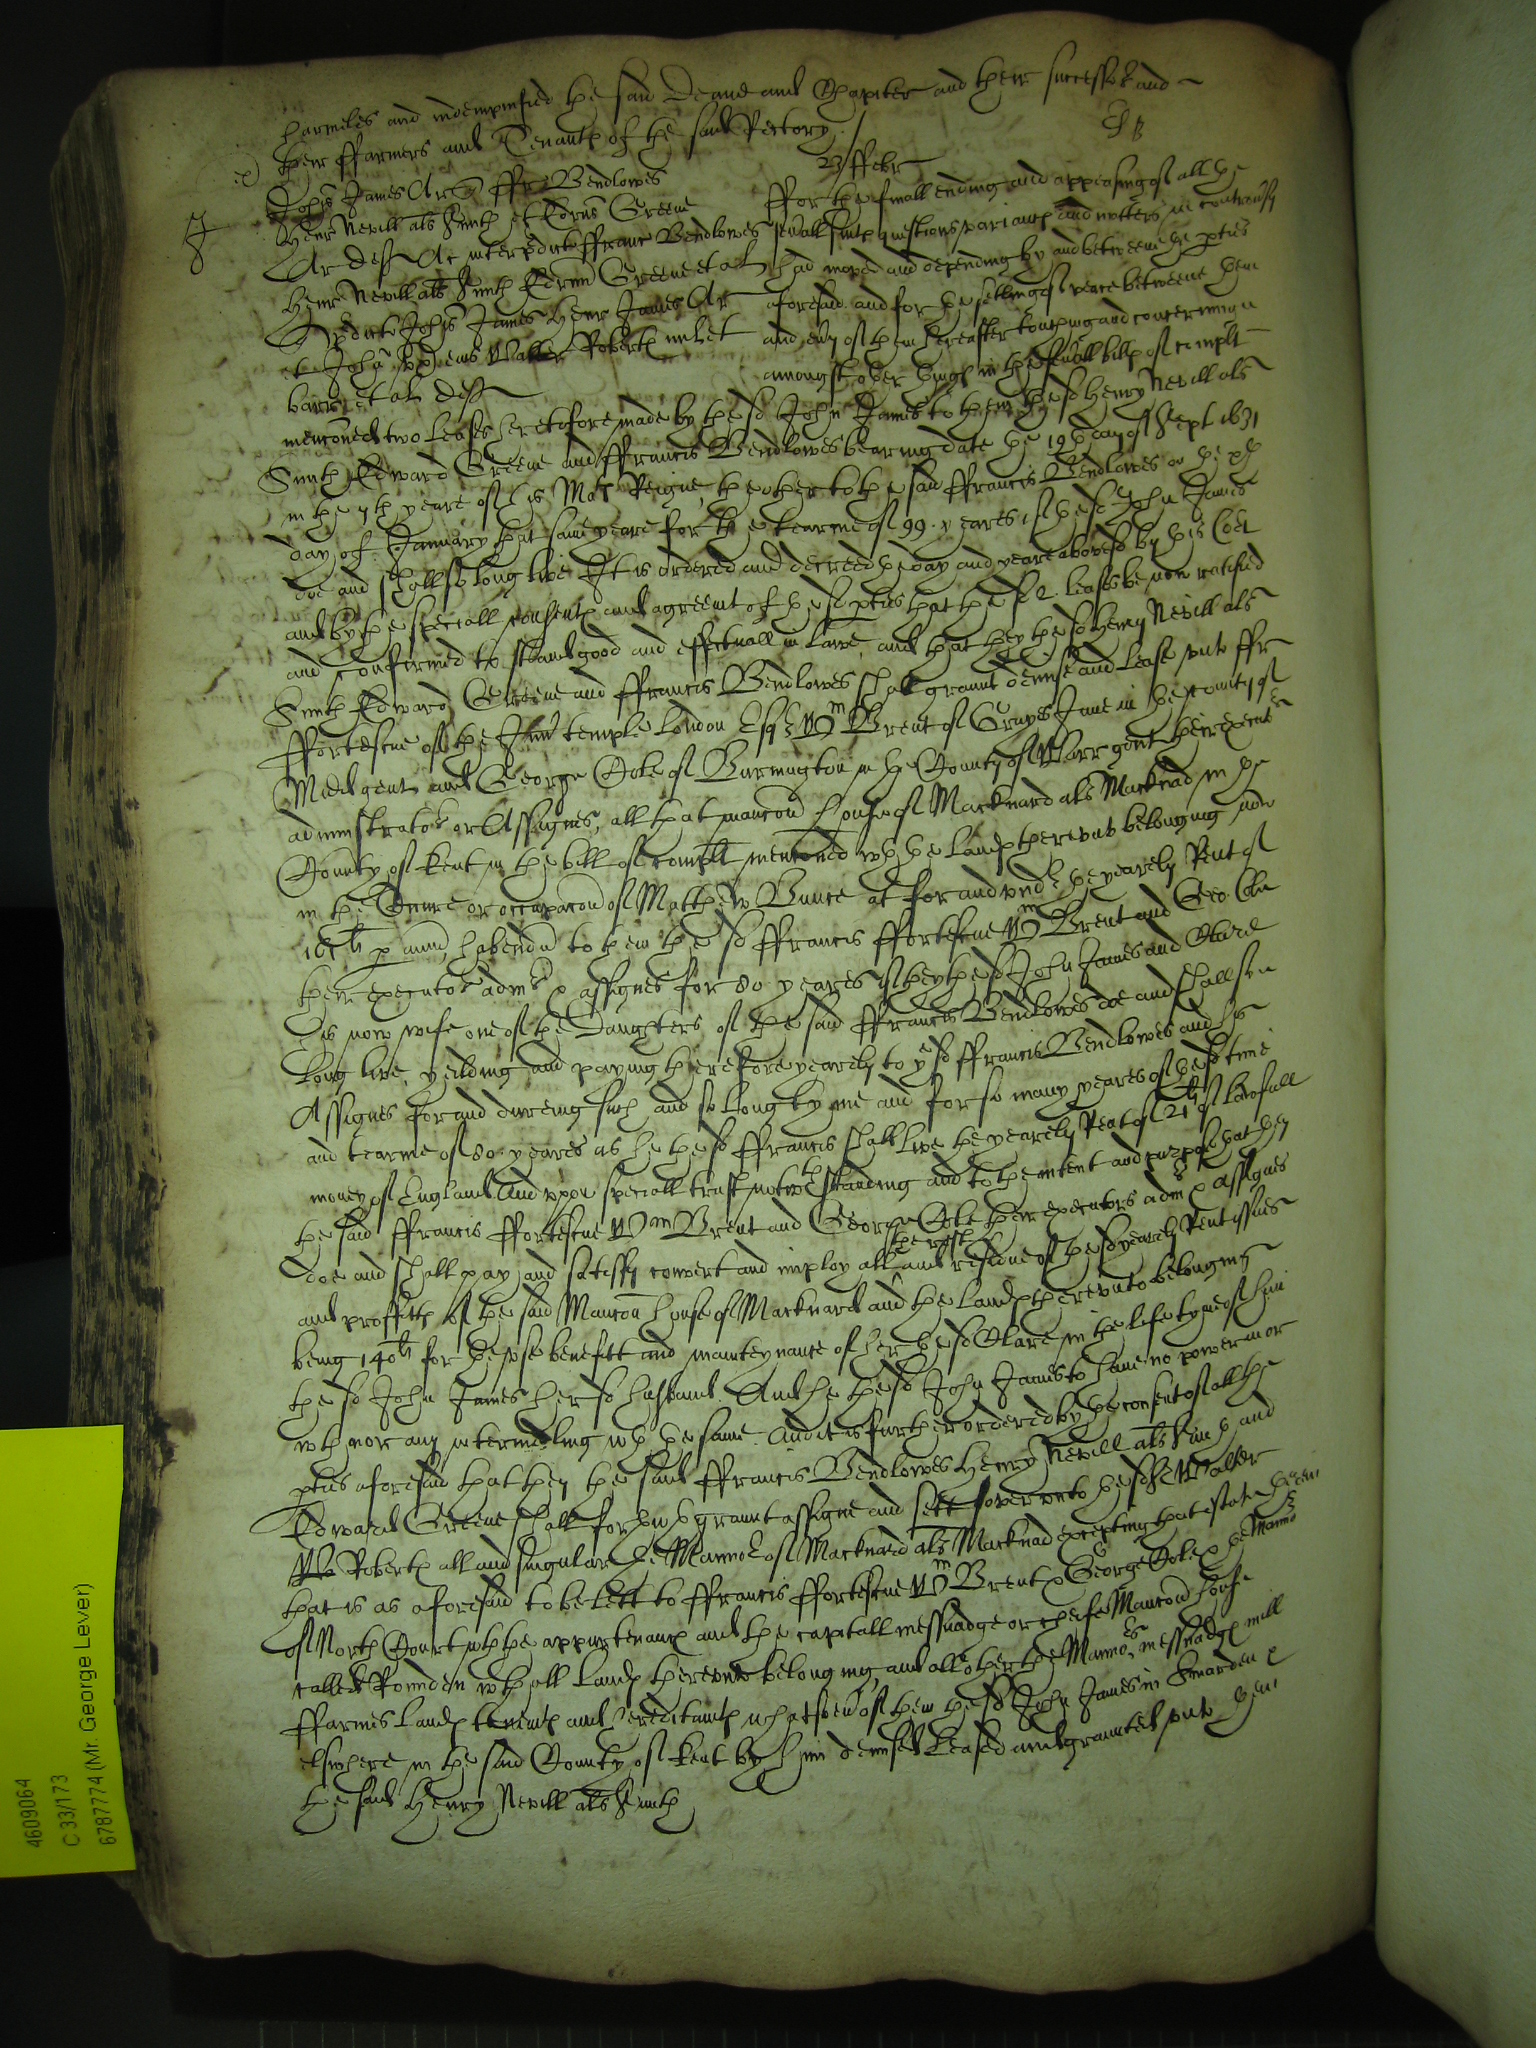 harmeles and indempnified the said Deane and Chapiter and their successors and
their ffarmers and Tenants of the said Rectory /
23 ffebr
Johes James Ar ffr Bendlowes
Henr Nevill als Smith et Edrus Greene
Ar deff Ac inter pdict ffranc Bendlowes
Henr Nevill als Smith Edrum Greene et al
pdict Johes James Henr James Ar
et Johes Walter Roberts
et al deff
ffor the finall ending and appeasing of all the
severall suits questions variants and matters in controversy
had moved and depending by and betweene the pties
aforesaid and for the setling of peace betweene them
and every of them hereafter touching and concerning
amongst other things in the severall bills of complt
menconed two leases heretofore made by the sd John James to them the sd Henry Nevill als
Smith Edward Greene and ffrancis Bendlowes bearing date the 19th day of Sept 1631
in the 7th yeare of his Mats Reigne, the other to the said ffrancis Bendlowes
day of January that same yeare for the tearme of 99 yeares if the sd John James
doe and shall so long live It is ordered and decreed the day and yeare abovesd by this Cort
and by the speciall consents and agreemt of the sd pties that the sd 2 leases be now ratified
and confirmed to stand good and effectuall in lawe, and that they the sd Henry Nevill als
Smith Edward Greene and ffrancis Bendlowes shall graunt demise and lease unto ffr
ffortescue of the Inn temple London Esqr Wm Brent of Grayes Inne in the County of
Midd gent and George Cole of Burmington in the County of Warr gent their executrs
administrators or Assignes, all that mancon house of Macknard als Macknad in the
County of Kent in the bill of complt menconed wth the lands thereunto belonging now
in the Tenure or occupacon of Mathew Bunce at for and undr the yearely Rent of
161li p annu, habendu to them the sd ffrancis ffortescue Wm Brent and Geo: Cole
their executors admrs & assignes for 80 yeares if they the sd John James and Clare
his now wife one of the Daughters of the said ffrancis Bendlowes doe and shall soe
long live, yeilding and paying therefore yearely to ye sd ffrancis Bendlowes and his
Assignes for and dureing such and so long tyme and for so many yeares of the sd time
and tearme of 80 yeares as he the sd ffrancis shall live the yearely Rent of 21li of lawfull
money of England And uppon speciall trust notwthstanding and to the intent and purpose that they
the said ffrancis ffortescue Wm Brent and George Cole their executors admrs & assignes
doe and shall pay and satisfy convert and imploy all the rest and residue of the sd yearely Rent issues
and proffitts of the said Mancon house of Macknard and the lands thereunto belonging
being 140li for the use benefitt and mainteynance of her the sd Clare in the life tyme of him
the sd John James her sd husband. And he the sd John James to have no power in or
wth nor any intermedling wth the same. And it is further ordered by the consent of all the
pties aforesaid that they the said ffrancis Bendlowes Henry Nevill als Smith and
Edward Greene shall forthwth graunt assigne and sett over unto the sd Sr Walter
Roberts all and singular the Mannor of Macknard als Macknad excepting that estate therein
that is as aforesaid to be lett to ffrancis ffortescue Wm Brent & George Cole & ye Mannor
of North Court wth the appurtenancs and the capitall messuadge or cheife Mancon house
called Romden wth all lands thereunto belonging and all other the Mannors messuadgs mill
ffarmes lands tenemts and hereditamts whatsoever of him the sd John James in Smarden &
elswhere in the said County of Kent by him demised leased and graunted unto them
the said Henry Nevill als Smith
4609064
C 33/173
6787774 (Mr. George Lever)